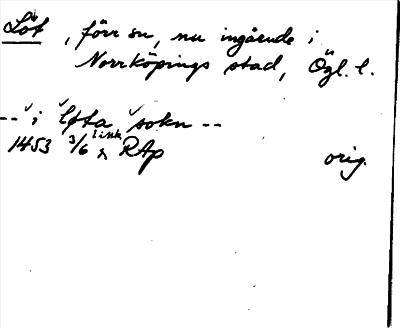 Löt, förr sn, nu ingående i
Norrköpings stad, Ögl. l.
-- i løta sokn --
1453 3/6 Link. RAp orig.